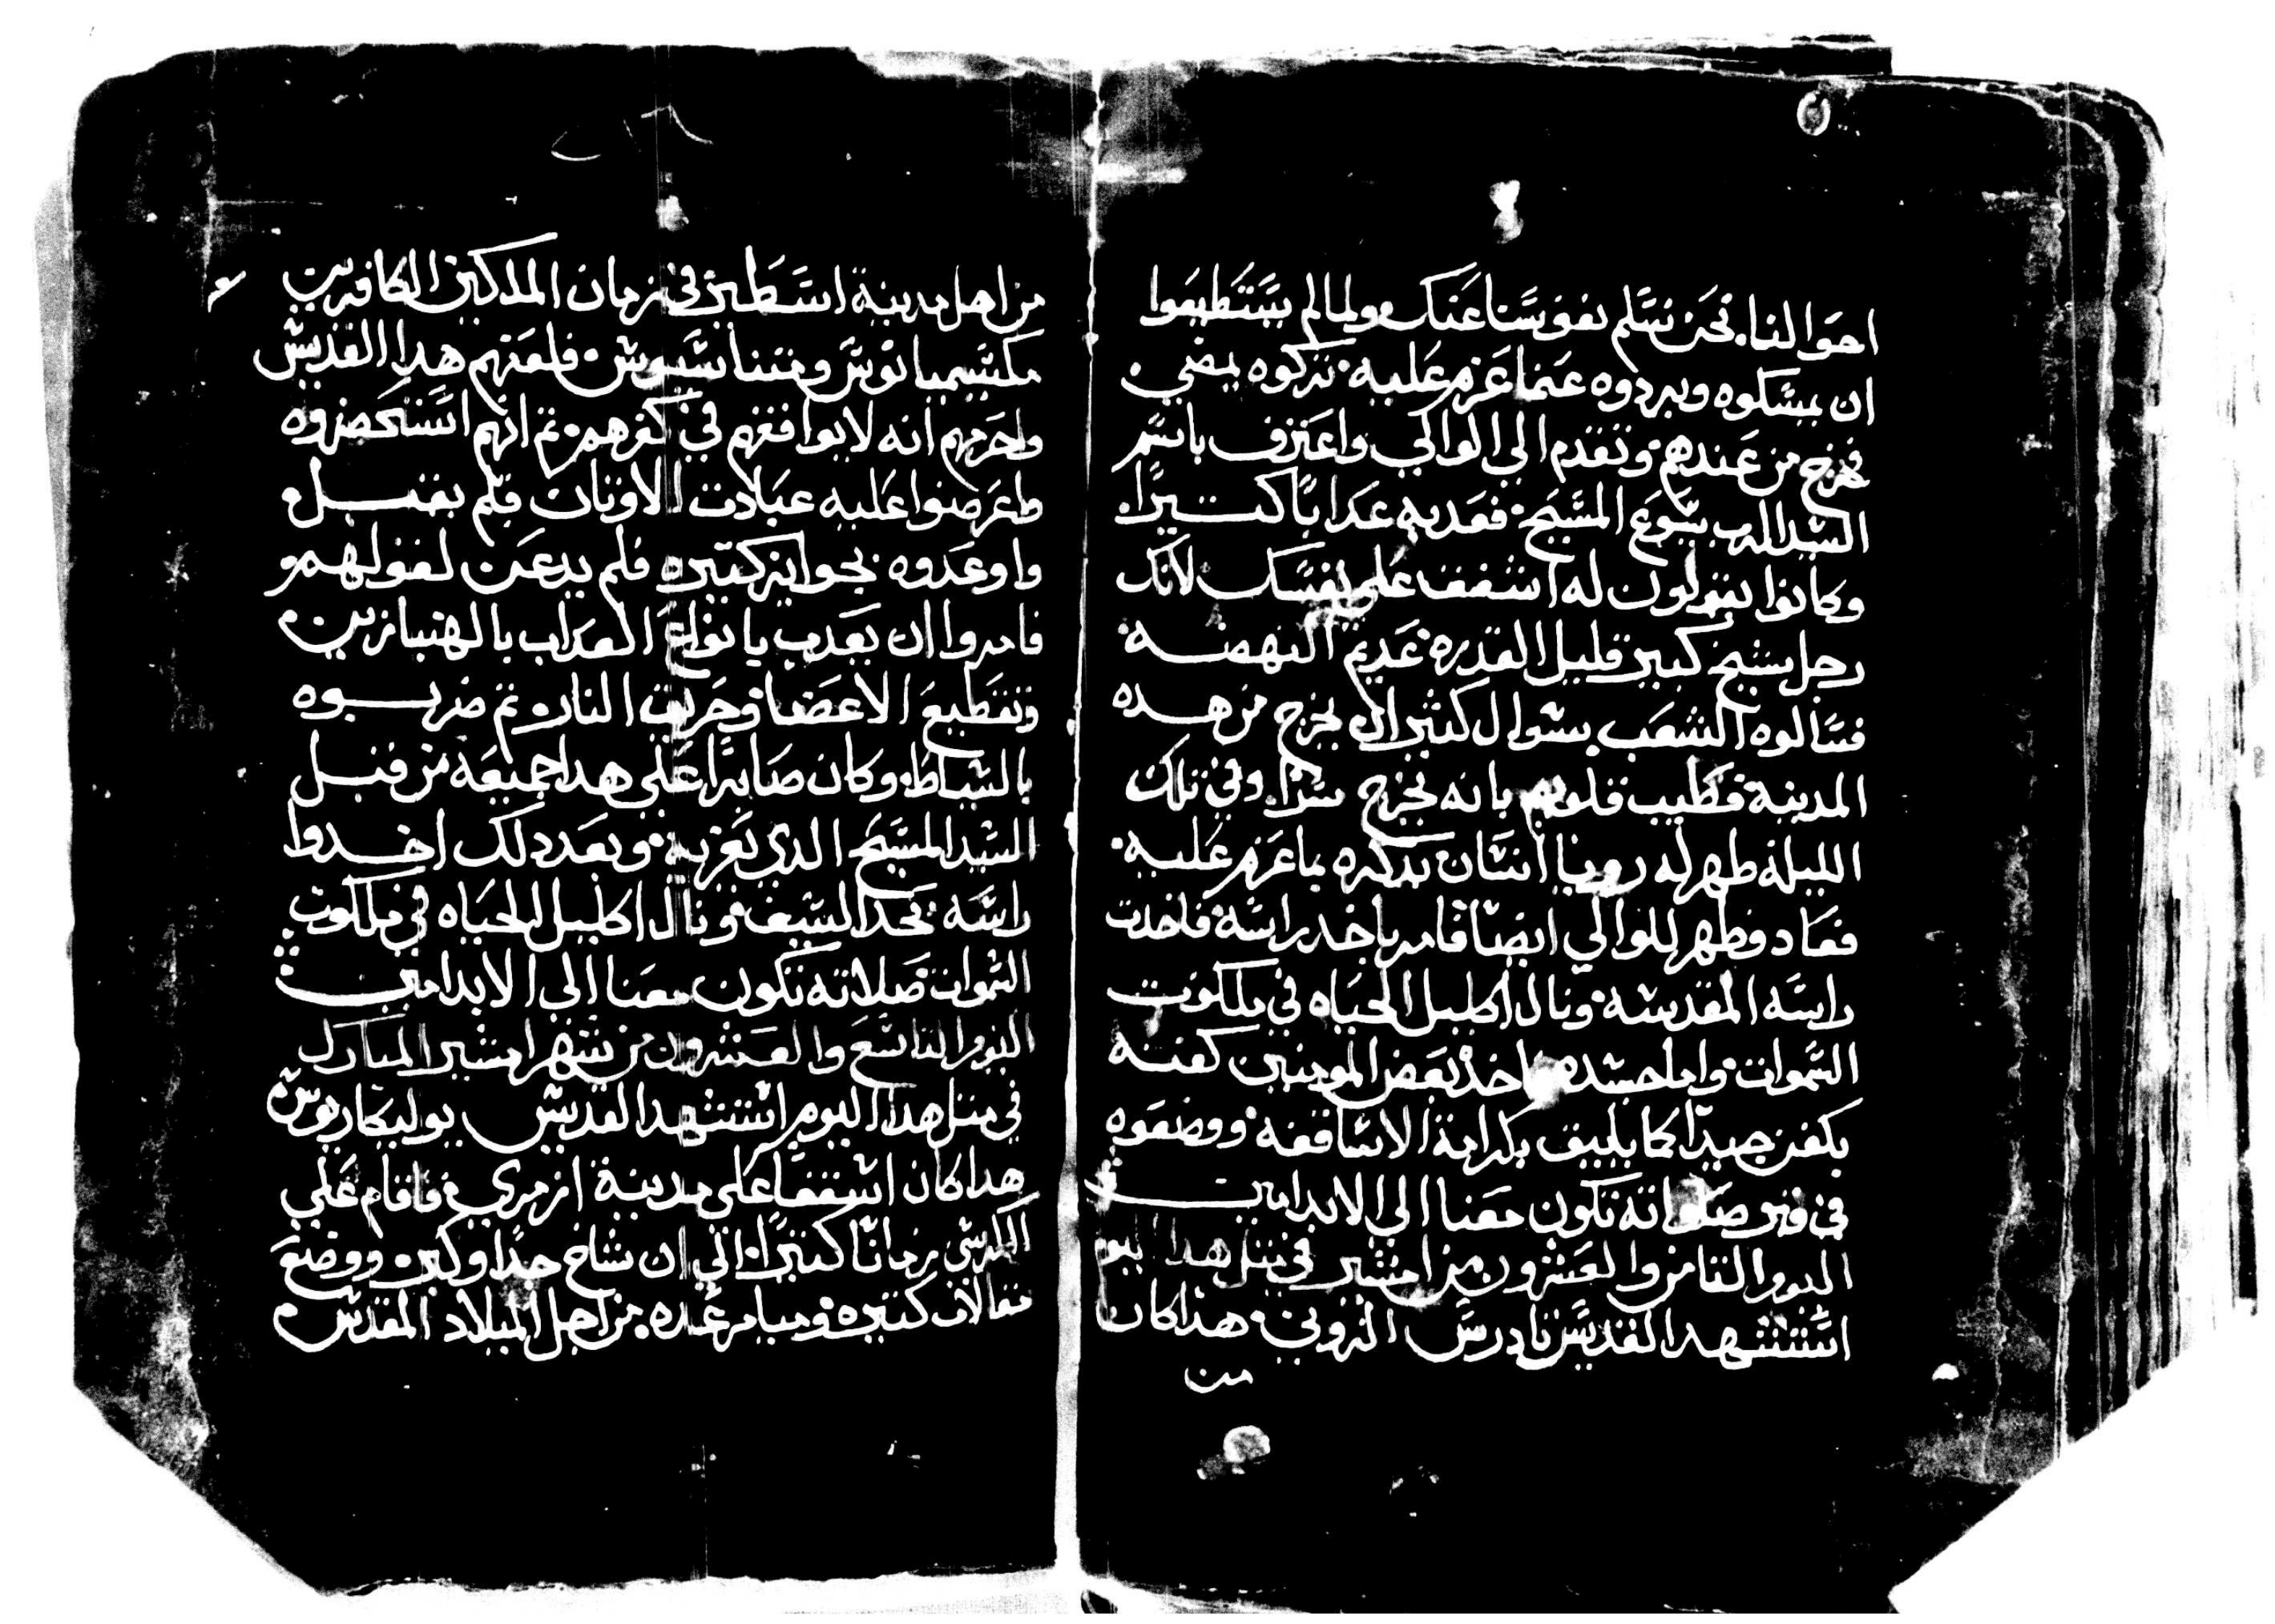 احوالنا. نحن نسلم نفوسنا عنك ولما لم يستطيعوا
ان يمسكوه ويردوه عما عزم عليه تركوه يمضي
فخرج من عندهم وتقدم الي الوالي واعترف باسم
السيد الرب يسوع المسيح فعدبه عدابًا كتيرًا
وكانوا يقولون له اشفق علي نفسك لانك
رجل شيخ كبير قليل القدره عديم النهضه
فسالوه الشعب بسوال كثير ان يخرج من هده
المدينة فطيب قلوبهم بانه يخرج سرًا وفي تلك
الليلة ظهر له رويا انسان يدكره بما عزم عليه
فعاد وظهر للوالي ايضًا فامر باخد راسه فاخدت
راسه المقدسه ونال اكليل الحياه في ملكوت
السموات واما جسده اخد بعض المومنين كفنه
بكفن جيدًا كما يليق بكرامة الاساقفه ووضعوه
في قبر صلواته تكون معنا الي الابد امين
اليوم التامن والعشرون من امشير في متل هدا اليوم
استشهد القديس تادرس الرومي هدا كان
من
من اهل مدينة اسطير في زمان الملكين الكافرين
مكسيميانوس فلعنهم هدا القديس
واحرمهم انه لا يوافقهم في كفرهم تم انهم استحضروه
واعرضوا عليه عبادت الاوتان فلم يقبل
واوعدوه بجوايز كتيره فلم يدعن لقولهم
فامروا ان يعدب بانواع العداب بالهنبازين
وتقطيع الاعضا وحريق النار تم ضربوه
بالسياط وكان صابرًا علي هدا جميعه من قبل
السيد المسيح الدي نعزيه وبعد دلك اخدوا
راسه بحد السيف ونال اكليل الحياه في ملكوت
السموات صلاته تكون معنا الي الابد امين
اليوم التاسع والعشرون من شهر امشير المبارك
في متل هدا اليوم استشهد القديس بوليكاربوس
هدا كان اسقفًا علي مدينة ازمري فاقام علي
الكرسي زمانًا كتيرًا الي ان شاخ جدًا وكبر ووضع
مقالات كتيره وميامر عده من اجل الميلاد المقدس